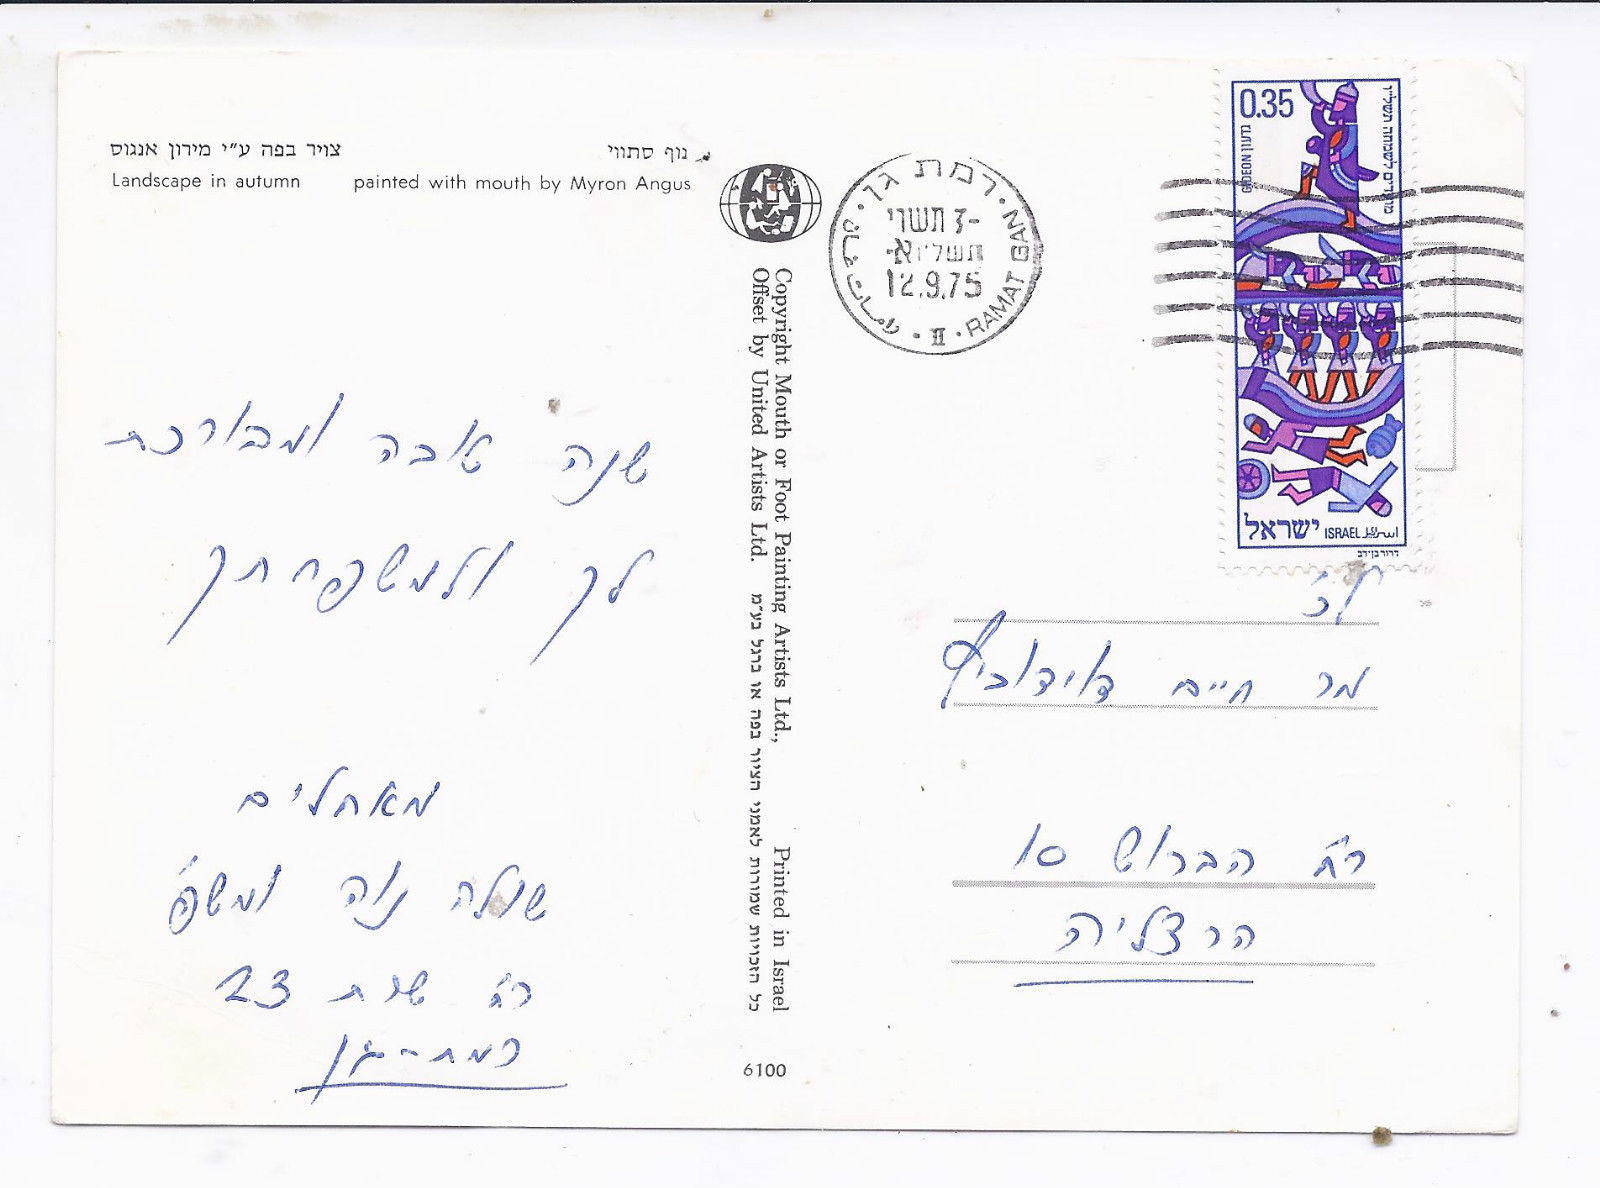 צויר בפה ע״י מירון אנגוס נוף סתווי
Landscape in autumn painted with mouth by Myron Angus
שנה טובה ומבורכת
לך ולמשפחתך
מאחלים
שולה נוה ומשפ'
רח' שרת 23
רמת-גן
Copyright Mouth or Foot Painting Artists Ltd., Printed in Israel
Offset by United Artists Ltd. כל הזכויות שמורות לאמני הציור בפה או ברגל בע״מ
6100
רמת גן
RAMAT GAN
תשרי
12.9.75
II
0.35
גדעון GIDEON
מועדים לשמחה תשל״ו
ישראל ISRAEL اسرائيل
לכ'
מר חיים דוידוביץ
רח' הברוש 10
הרצליה